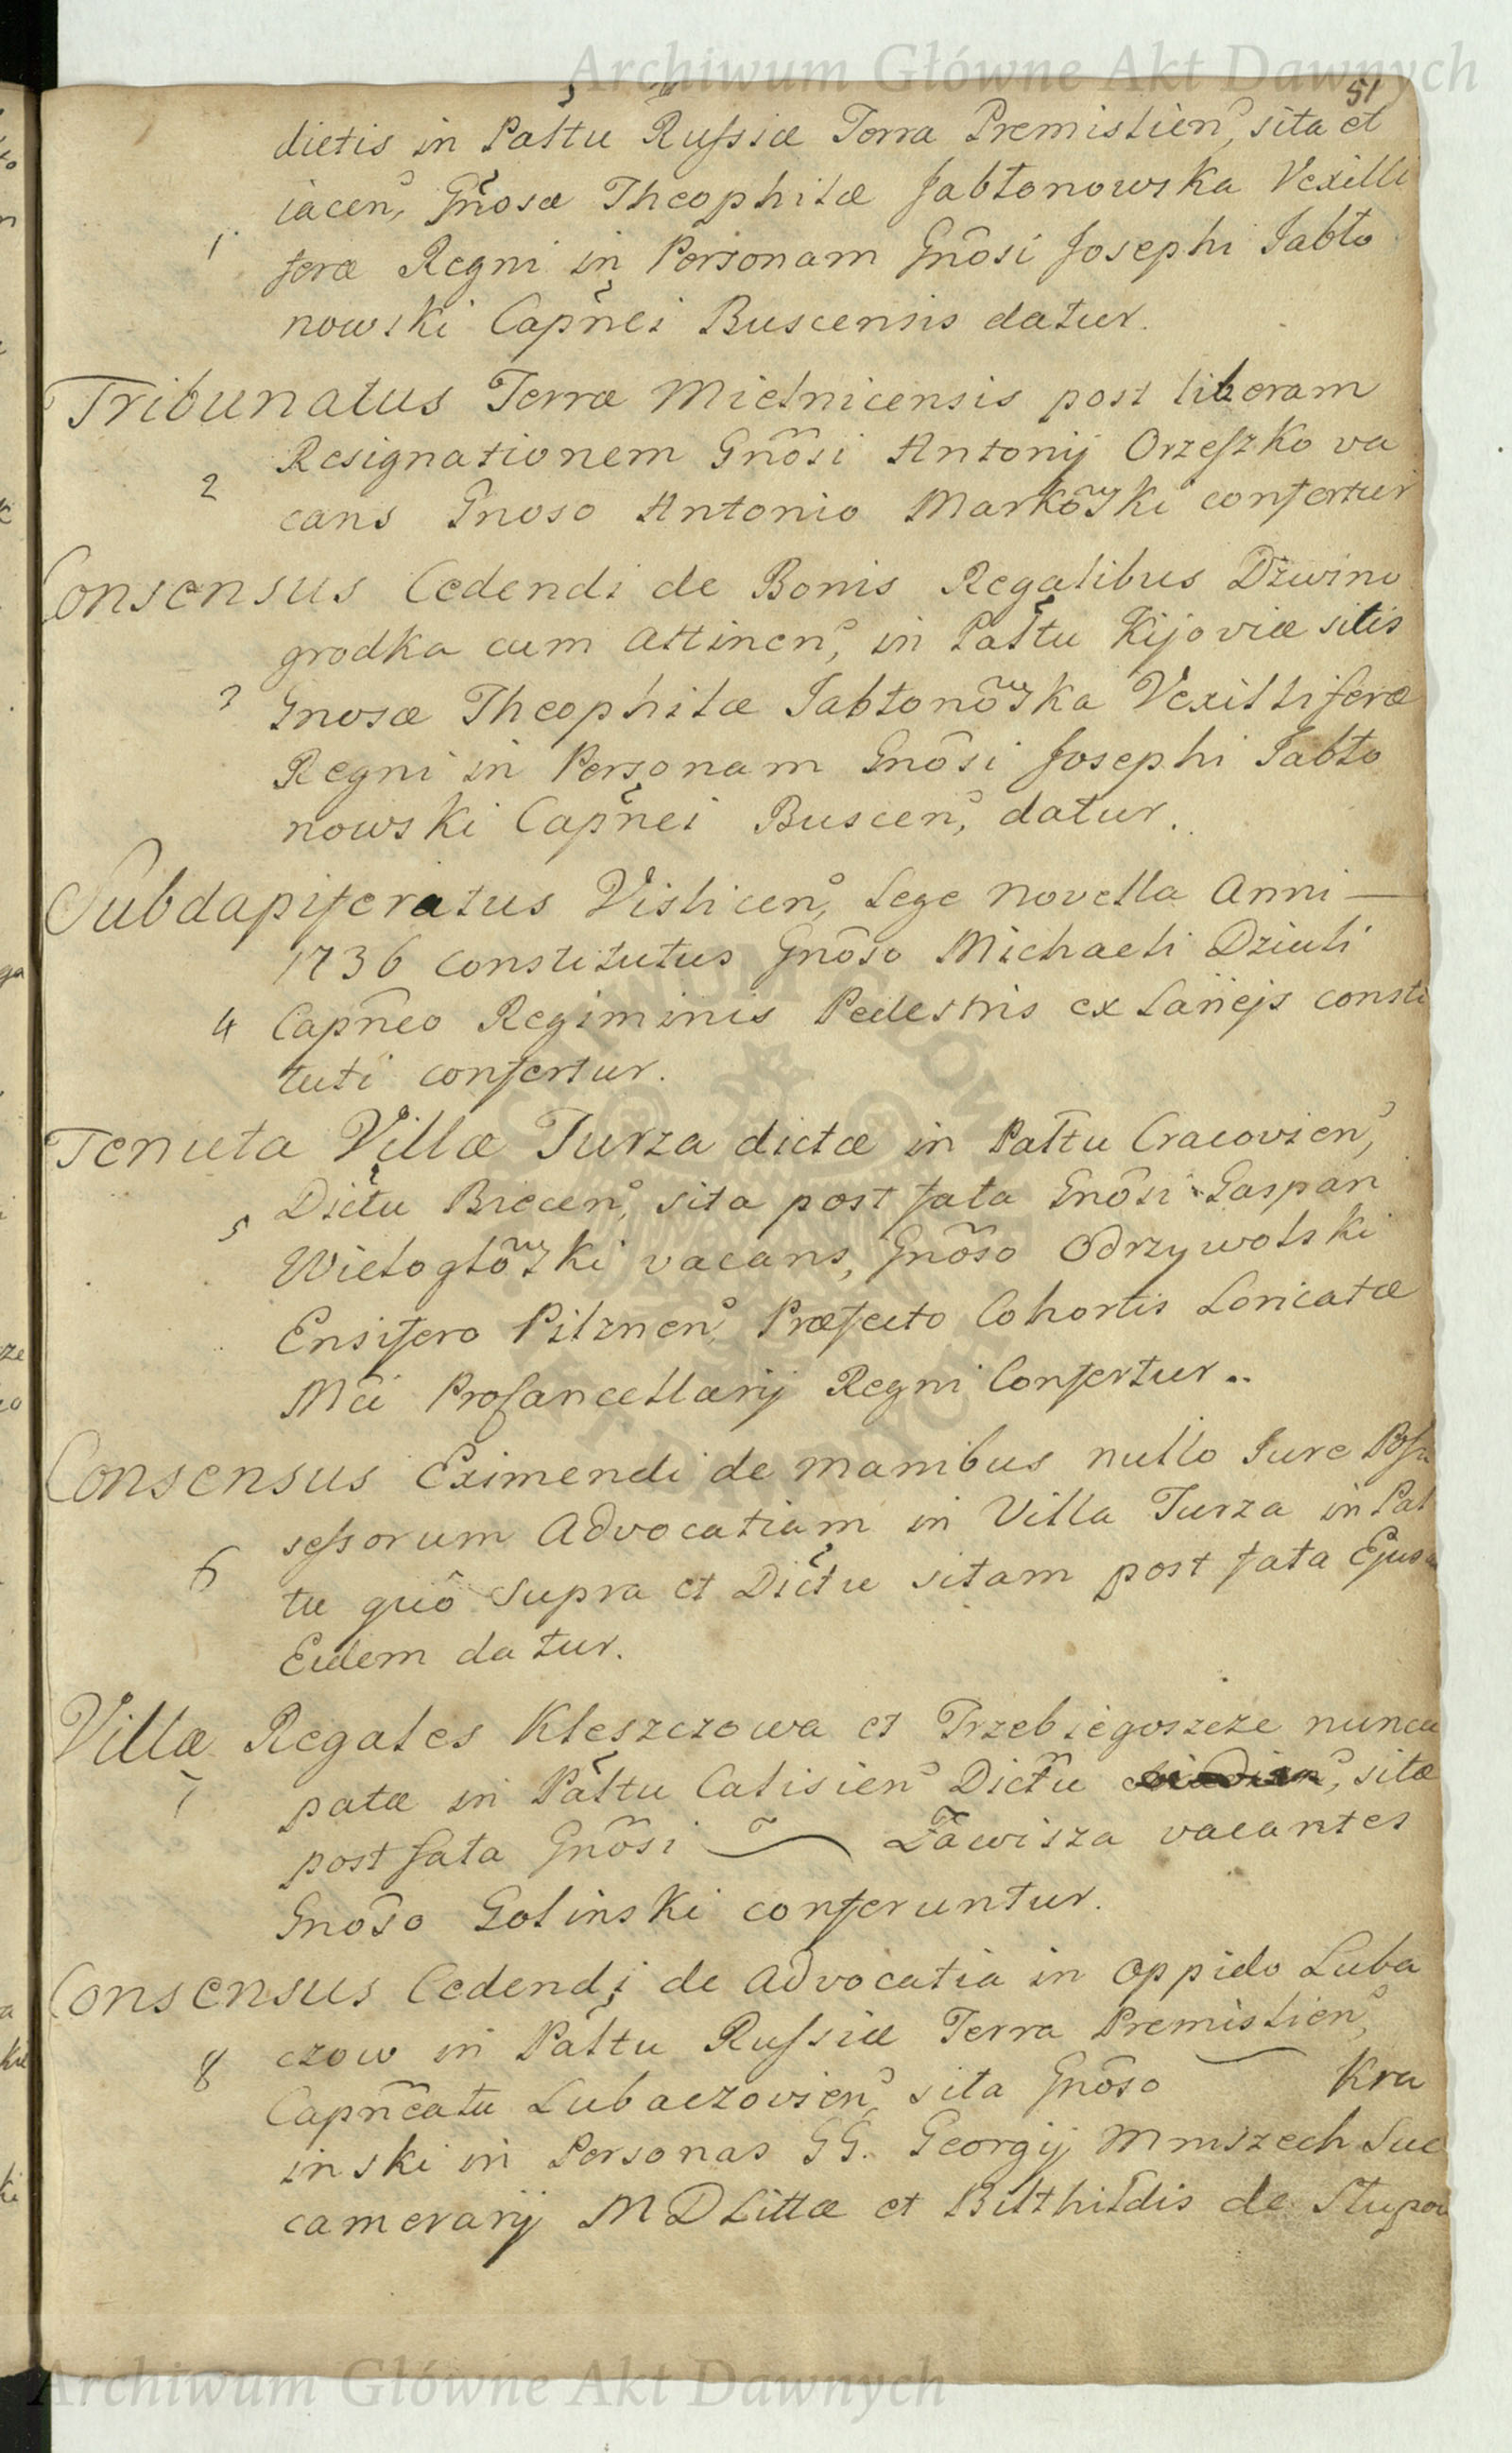 Archiwum Główne Akt Dawnych
51
dictis in Pałtu Russiæ Terra Premislien, sita et
iacen, Gnosæ Theophilæ Jabłonowska Vexilli
1 feræ Regni in Personam Gnosi Josephi Jabło
nowski Capnei Buscensis datur.
Tribunatus Terræ Mielnicensis post liberam
Resignationem Gnosi Antonij Orzeszko va
2 cans Gnoso Antonio Markowski confertur
Consensus Cedendi de Bonis Regalibus Dzwino
grodka cum attinen, in Pałtu Kijoviæ sitis
3 Gnosæ Theophilæ Jabłonowska Vexilliferæ
Regni in Personam Gnosi Josephi Jabło
nowski Capnei Buscen, datur.
Subdapiferatus Vislicen, Lege novella Anni —
1736 constitutus Gnoso Michaeli Dziuli
4 Capneo Regiminis Pedestris ex Lanejs consti
tuti confertur.
Tenuta Villæ Turza dictæ in Pałtu Cracovien,
5 Dictu Biecen, sita post fata Gnosi Gaspari
Wielogłowski vacans, Gnoso Odrzywolski
Ensifero Pilznen, Præfecto Cohortis Loricatæ
Mci ProCancellarij Regni Confertur..
Consensus Eximendi de manibus nullo Jure Posse
sessorum Advocatiam in Villa Turza in Pał
6 tu quo supra et Dictu sitam post fata Ejus
Eidem datur.
Villæ Regales Kleszczowa et Trzebiegoszcze nuncu
7 patæ in Pałtu Calisien Dictu sitæ
post fata Gnosi Zawisza vacantes
Gnoso Golinski conferuntur.
Consensus Cedendi de Advocatia in Oppido Luba
8 czow in Pałtu Russiæ Terra Premislien,
Capneatu Lubaczovien, sita Gnoso Kra
inski in Personas GG. Georgij Mniszech Suc
camerarij MDLittæ et Bilthildis de Stupow
Archiwum Główne Akt Dawnych